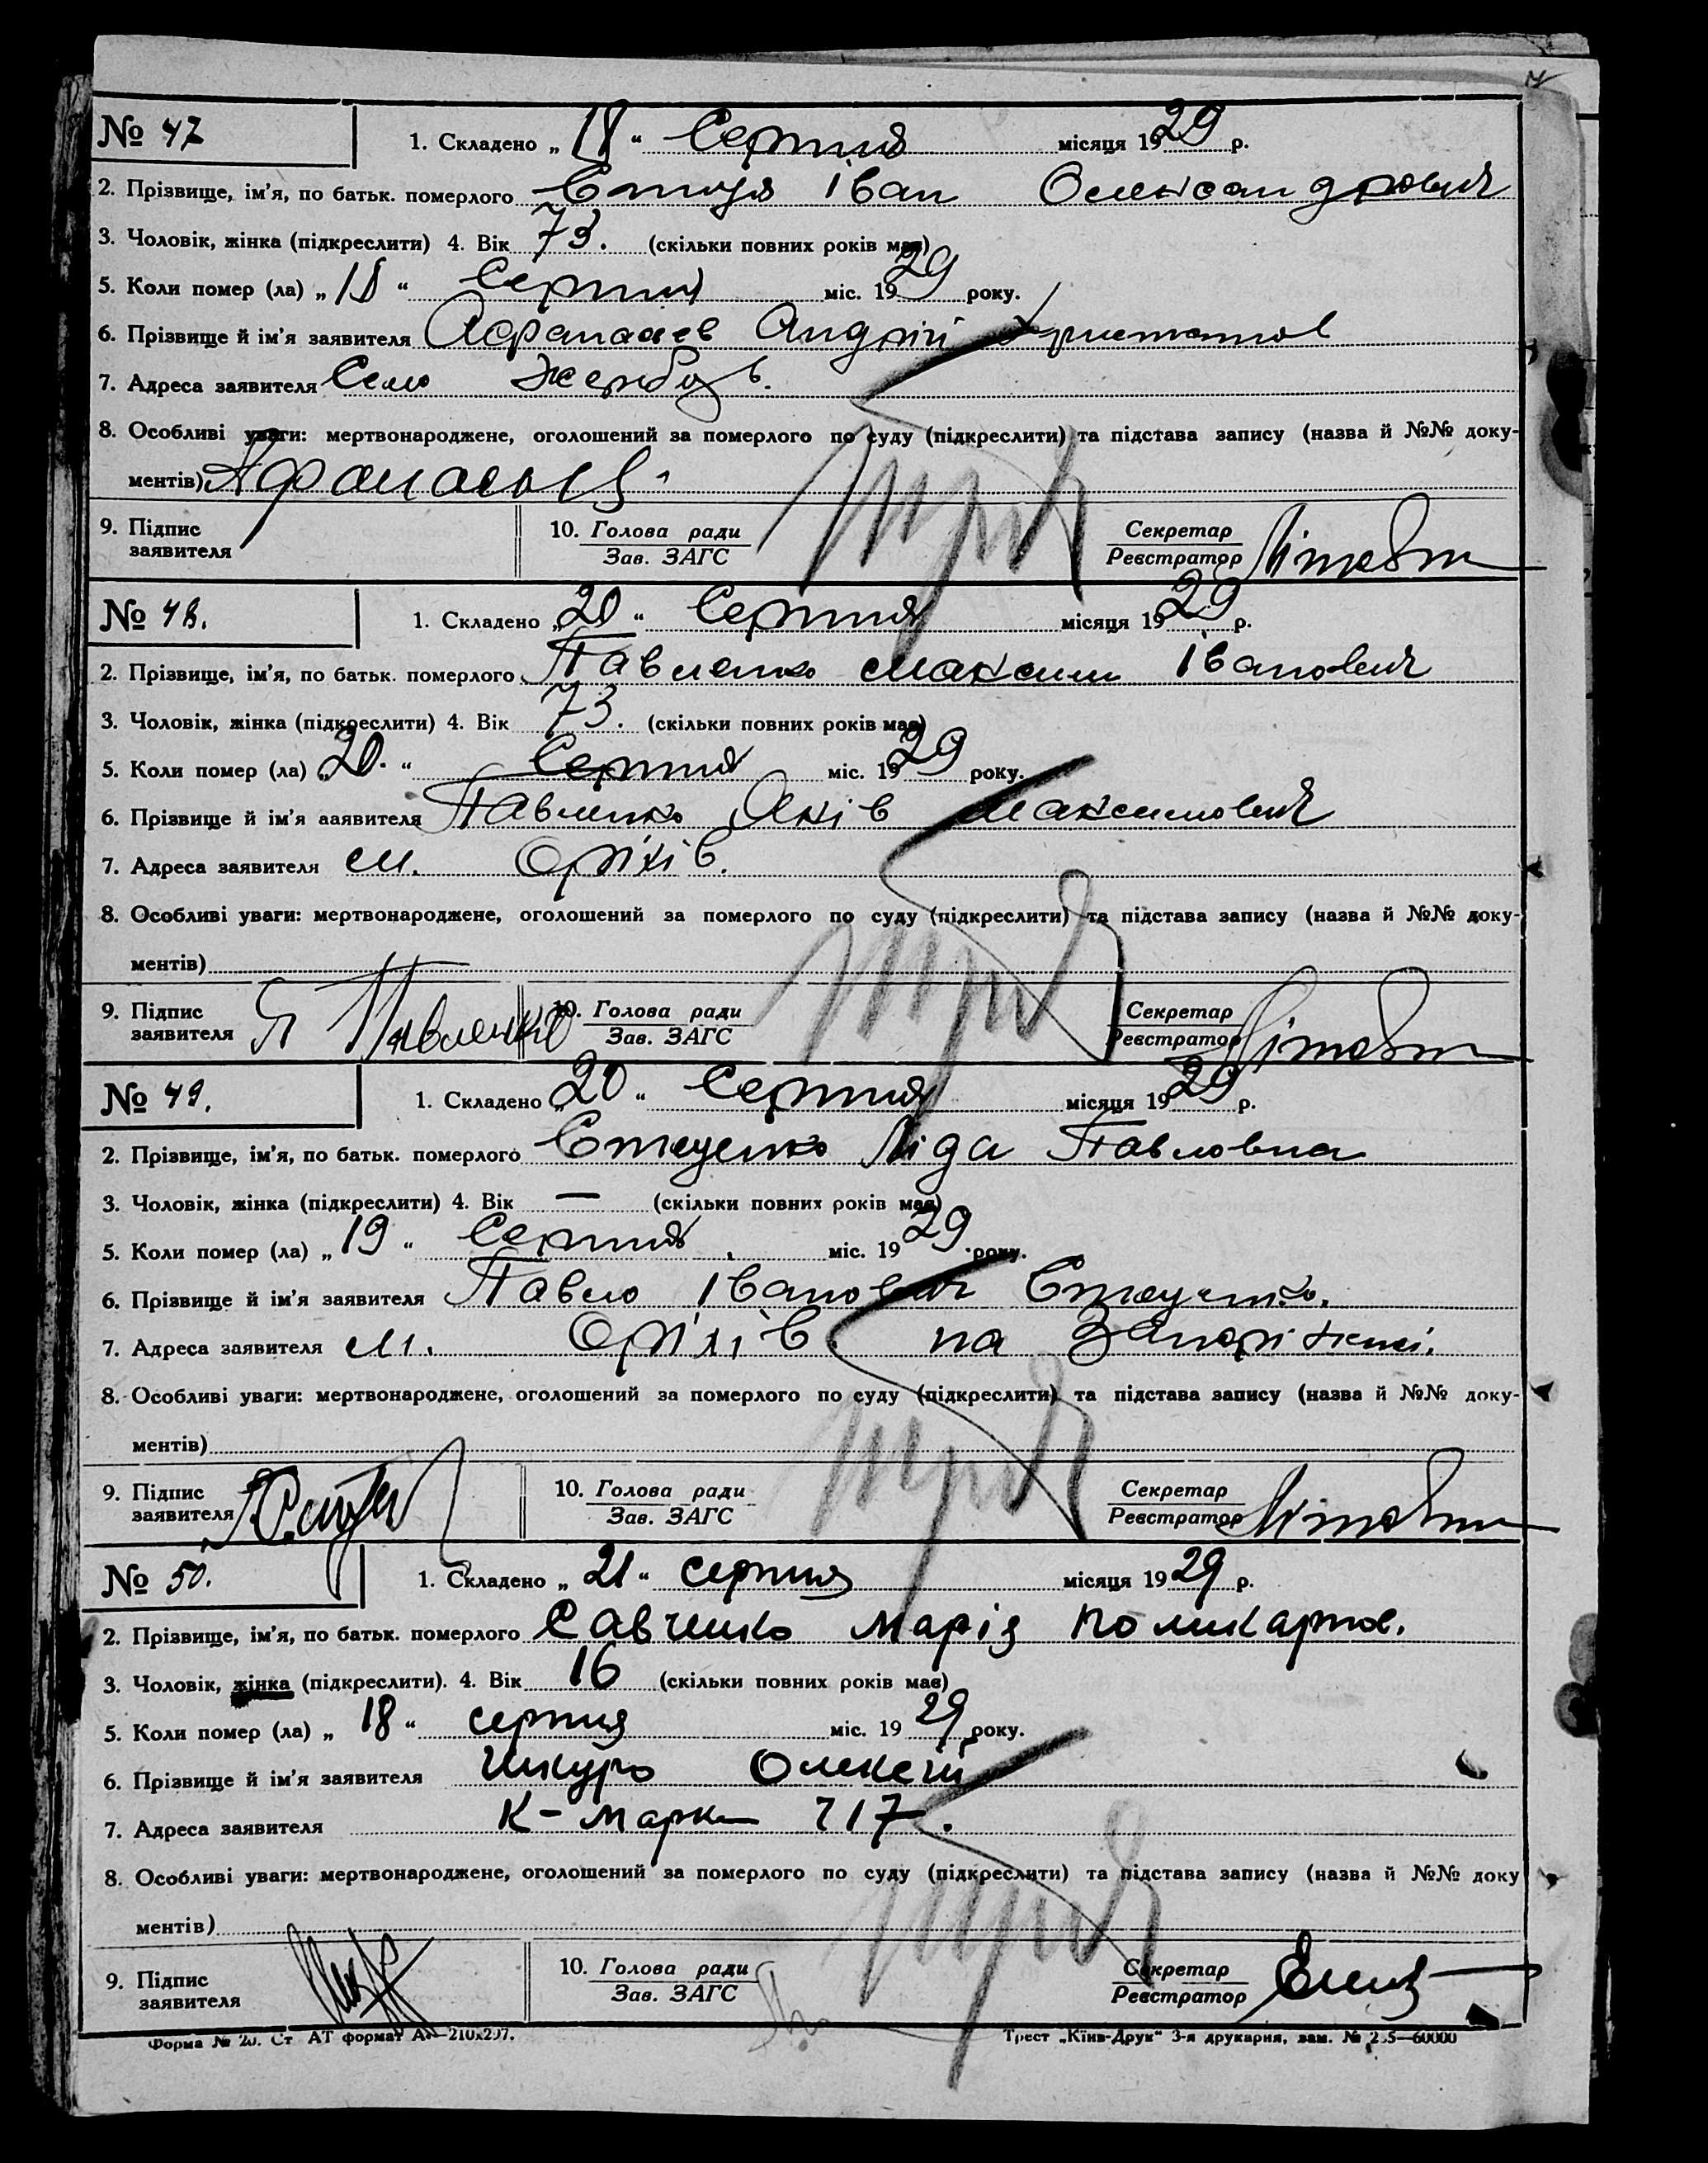 № 47
1. Складено „18“ Серпня місяця 1929 р.
2. Прізвище, ім'я, по батьк. померлого Іван Олександрович
3. Чоловік, жінка (підкреслити) 4. Вік 73. (скільки повних років має)
5. Коли помер (ла) „18“ Серпня міс. 1929 року.
6. Прізвище й ім'я заявителя Андрій
7. Адреса заявителя Село Жеребець.
8. Особливі уваги: мертвонароджене, оголошений за померлого по суду (підкреслити) та підстава запису (назва й №№ доку-
ментів)
9. Підпис заявителя
10. Голова ради
Зав. ЗАГС
Секретар
Реєстратор
№ 48.
1. Складено „20“ Серпня місяця 1929 р.
2. Прізвище, ім'я, по батьк. померлого Павленко Максим Іванович
3. Чоловік, жінка (підкреслити) 4. Вік 73. (скільки повних років має)
5. Коли помер (ла) „20.“ Серпня міс. 1929 року.
6. Прізвище й ім'я ааявителя Павленко Яків Максимович
7. Адреса заявителя м. Оріхів.
8. Особливі уваги: мертвонароджене, оголошений за померлого по суду (підкреслити) та підстава запису (назва й №№ доку-
ментів)
9. Підпис заявителя Я Павленко
10. Голова ради
Зав. ЗАГС
Секретар
Реєстратор
№ 49.
1. Складено „20“ Серпня місяця 1929 р.
2. Прізвище, ім'я, по батьк. померлого Стеценко Ліда Павловна
3. Чоловік, жінка (підкреслити) 4. Вік — (скільки повних років має)
5. Коли помер (ла) „19“ Серпня міс. 1929 року.
6. Прізвище й ім'я заявителя Павло Іванович Стеценко.
7. Адреса заявителя м. Оріхів на Запоріжжі.
8. Особливі уваги: мертвонароджене, оголошений за померлого по суду (підкреслити) та підстава запису (назва й №№ доку-
ментів)
9. Підпис заявителя
10. Голова ради
Зав. ЗАГС
Секретар
Реєстратор
№ 50.
1. Складено „21“ серпня місяця 1929 р.
2. Прізвище, ім'я, по батьк. померлого Савченко Марія Поликарпов.
3. Чоловік, жінка (підкреслити). 4. Вік 16 (скільки повних років має)
5. Коли помер (ла) „18“ серпня міс. 1929 року.
6. Прізвище й ім'я заявителя Шкуро Олексій
7. Адреса заявителя К-Маркса 217.
8. Особливі уваги: мертвонароджене, оголошений за померлого по суду (підкреслити) та підстава запису (назва й №№ доку
ментів)
9. Підпис заявителя
10. Голова ради
Зав. ЗАГС
Секретар
Реєстратор
Форма № 20. Ст АТ формат А4—210х297.
Трест „Київ-Друк“ 3-я друкарня, зам. №